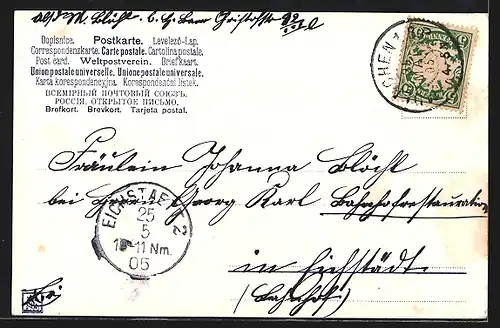 Dopisnice. Postkarte. Levelező-Lap.
Correspondenzkarte. Carte postale. Cartolina postale.
Post card. Weltpostverein. Briefkaart.
Union postale universelle. Unione postale universale.
Karta korespondencyjna. Korespondenční lístek.
ВСЕМІРНЫЙ ПОЧТОВЫЙ СОЮЗЪ.
РОССІЯ. ОТКРЫТОЕ ПИСЬМО.
Brefkort. Brevkort. Tarjeta postal.
CHEN
BAYERN
Fräulein Johanna Blöchl
bei Herrn Georg Karl Bahnhofrestauration
EICHSTAETT 2
25
5
10-11 Nm.
05
in Eichstädt
(Bahnhof)